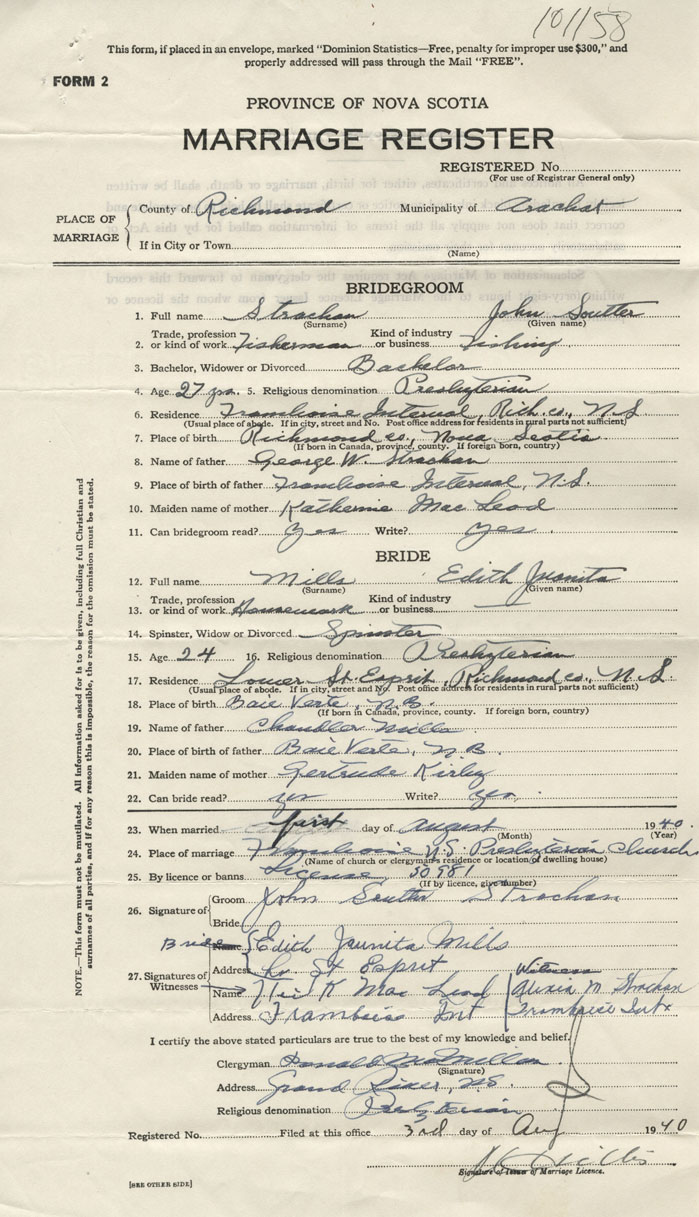 101158
This form, if placed in an envelope, marked "Dominion Statistics—Free, penalty for improper use $300," and
properly addressed will pass through the Mail "FREE".
FORM 2
PROVINCE OF NOVA SCOTIA
MARRIAGE REGISTER
REGISTERED No.
(For use of Registrar General only)
PLACE OF MARRIAGE
County of Richmond Municipality of Arachat
If in City or Town
(Name)
BRIDEGROOM
1. Full name Strachan John Soutter
(Surname) (Given name)
2. Trade, profession or kind of work Fisherman Kind of industry or business Fishing
3. Bachelor, Widower or Divorced Bachelor
4. Age 27 yrs. 5. Religious denomination Presbyterian
6. Residence Framboise Interval, Rich. co., N.S
(Usual place of abode. If in city, street and No. Post office address for residents in rural parts not sufficient)
7. Place of birth Richmond co., Nova Scotia
(If born in Canada, province, county. If foreign born, country)
8. Name of father George W. Strachan
9. Place of birth of father Framboise Interval, N.S.
10. Maiden name of mother Katherine Mac Leod
11. Can bridegroom read? Yes Write? Yes.
BRIDE
12. Full name Mills Edith Juanita
(Surname) (Given name)
13. Trade, profession or kind of work Housework Kind of industry or business —
14. Spinster, Widow or Divorced Spinster
15. Age 24 16. Religious denomination Presbyterian
17. Residence Lower St. Esprit, Richmond co., N.S
(Usual place of abode. If in city, street and No. Post office address for residents in rural parts not sufficient)
18. Place of birth Baie Verte, N.B.
(If born in Canada, province, county. If foreign born, country)
19. Name of father Chandler Mills
20. Place of birth of father Baie Verte, N.B.
21. Maiden name of mother Gertrude Kirby
22. Can bride read? yes Write? yes.
23. When married first day of August 1940.
(Month) (Year)
24. Place of marriage Framboise N.S. Presbyterian Church
(Name of church or clergyman's residence or location of dwelling house)
25. By licence or banns License, 50981
(If by licence, give number)
26. Signature of
Groom John Soutter Strachan
Bride
Bride Name Edith Jaunita Mills
Address Lr. St Esprit
27. Signatures of Witnesses
Name K Mac Leod Witness Alexia M Strachan
Address Framboise Int Framboise Int
I certify the above stated particulars are true to the best of my knowledge and belief.
Clergyman Donald McMillan
(Signature)
Address Grand River, N.S.
Religious denomination
Registered No. Filed at this office 3rd day of Aug 1940
Signature of Issuer of Marriage Licence.
[SEE OTHER SIDE]
NOTE.—This form must not be mutilated. All information asked for is to be given, including full Christian and
surnames of all parties, and if for any reason this is impossible, the reason for the omission must be stated.